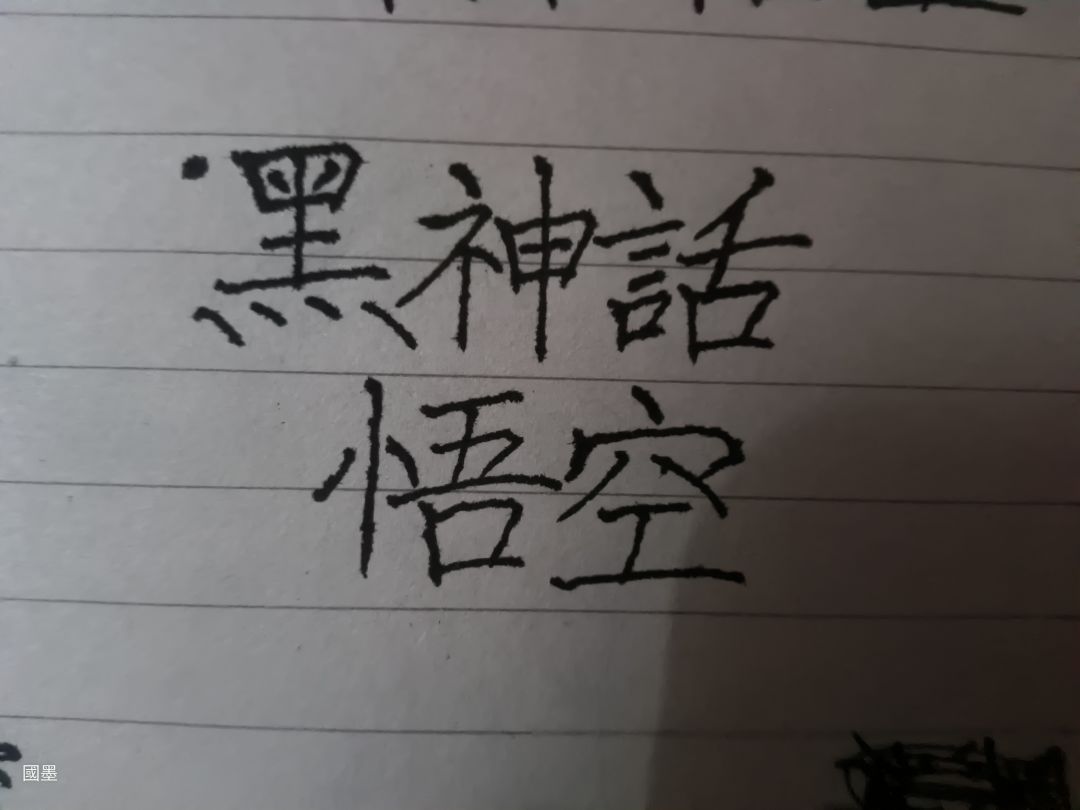 黑神話
悟空
國墨